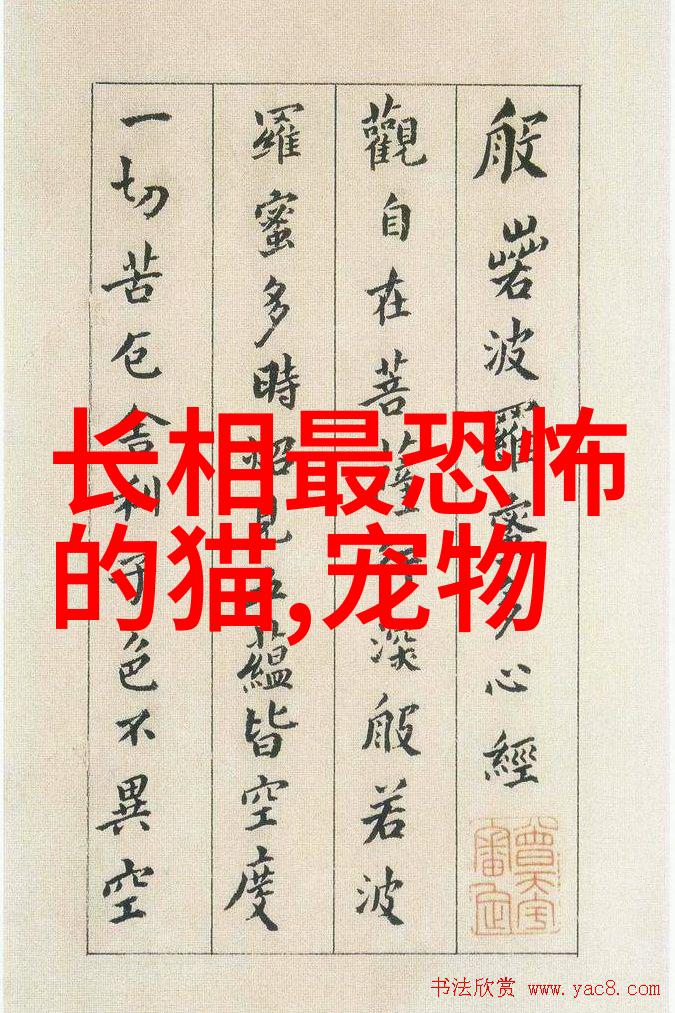 般若波羅蜜多心經
觀自在菩薩行深般若波
羅蜜多時照見五蘊皆空度
一切苦厄舍利子色不異空
长相最恐怖
的猫,宠物
书法欣赏 www.yac8.com